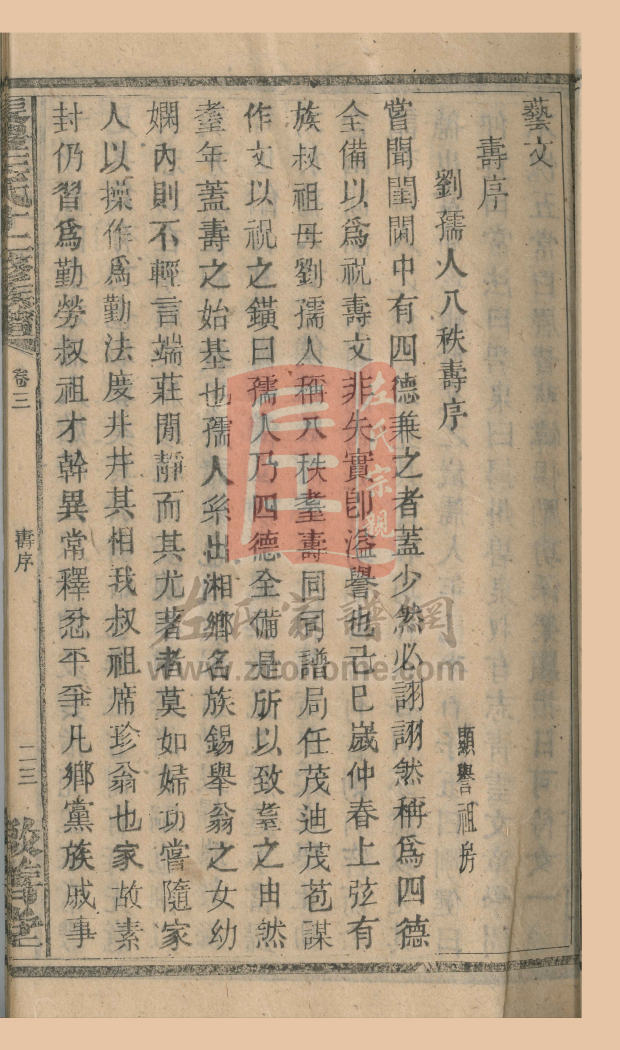 藝文
壽序
劉孺人八秩壽序
顯譽祖房
嘗聞閨閫中有四德兼之者蓋少然必詡詡然稱爲四德
全備以爲祝壽文非失實卽溢譽也己巳嵗仲春上弦有
族叔祖母劉孺人稱八秩耋壽同同譜局任茂迪茂苞謀
作文以祝之鐄曰孺人乃四德全備是所以致耋之由然
耋年蓋壽之始基也孺人系出湘鄉名族錫舉翁之女幼
嫻內則不輕言端莊閒靜而其尤著者莫如婦功嘗隨家
人以操作爲勤法度井井其相我叔祖席珍翁也家故素
封仍習爲勤勞叔祖才幹異常釋忿平爭凡鄉黨族戚事
氏十二修族譜
卷三
壽序
二三
敘倫堂
左氏宗親
左氏家譜網
www.zuohome.com